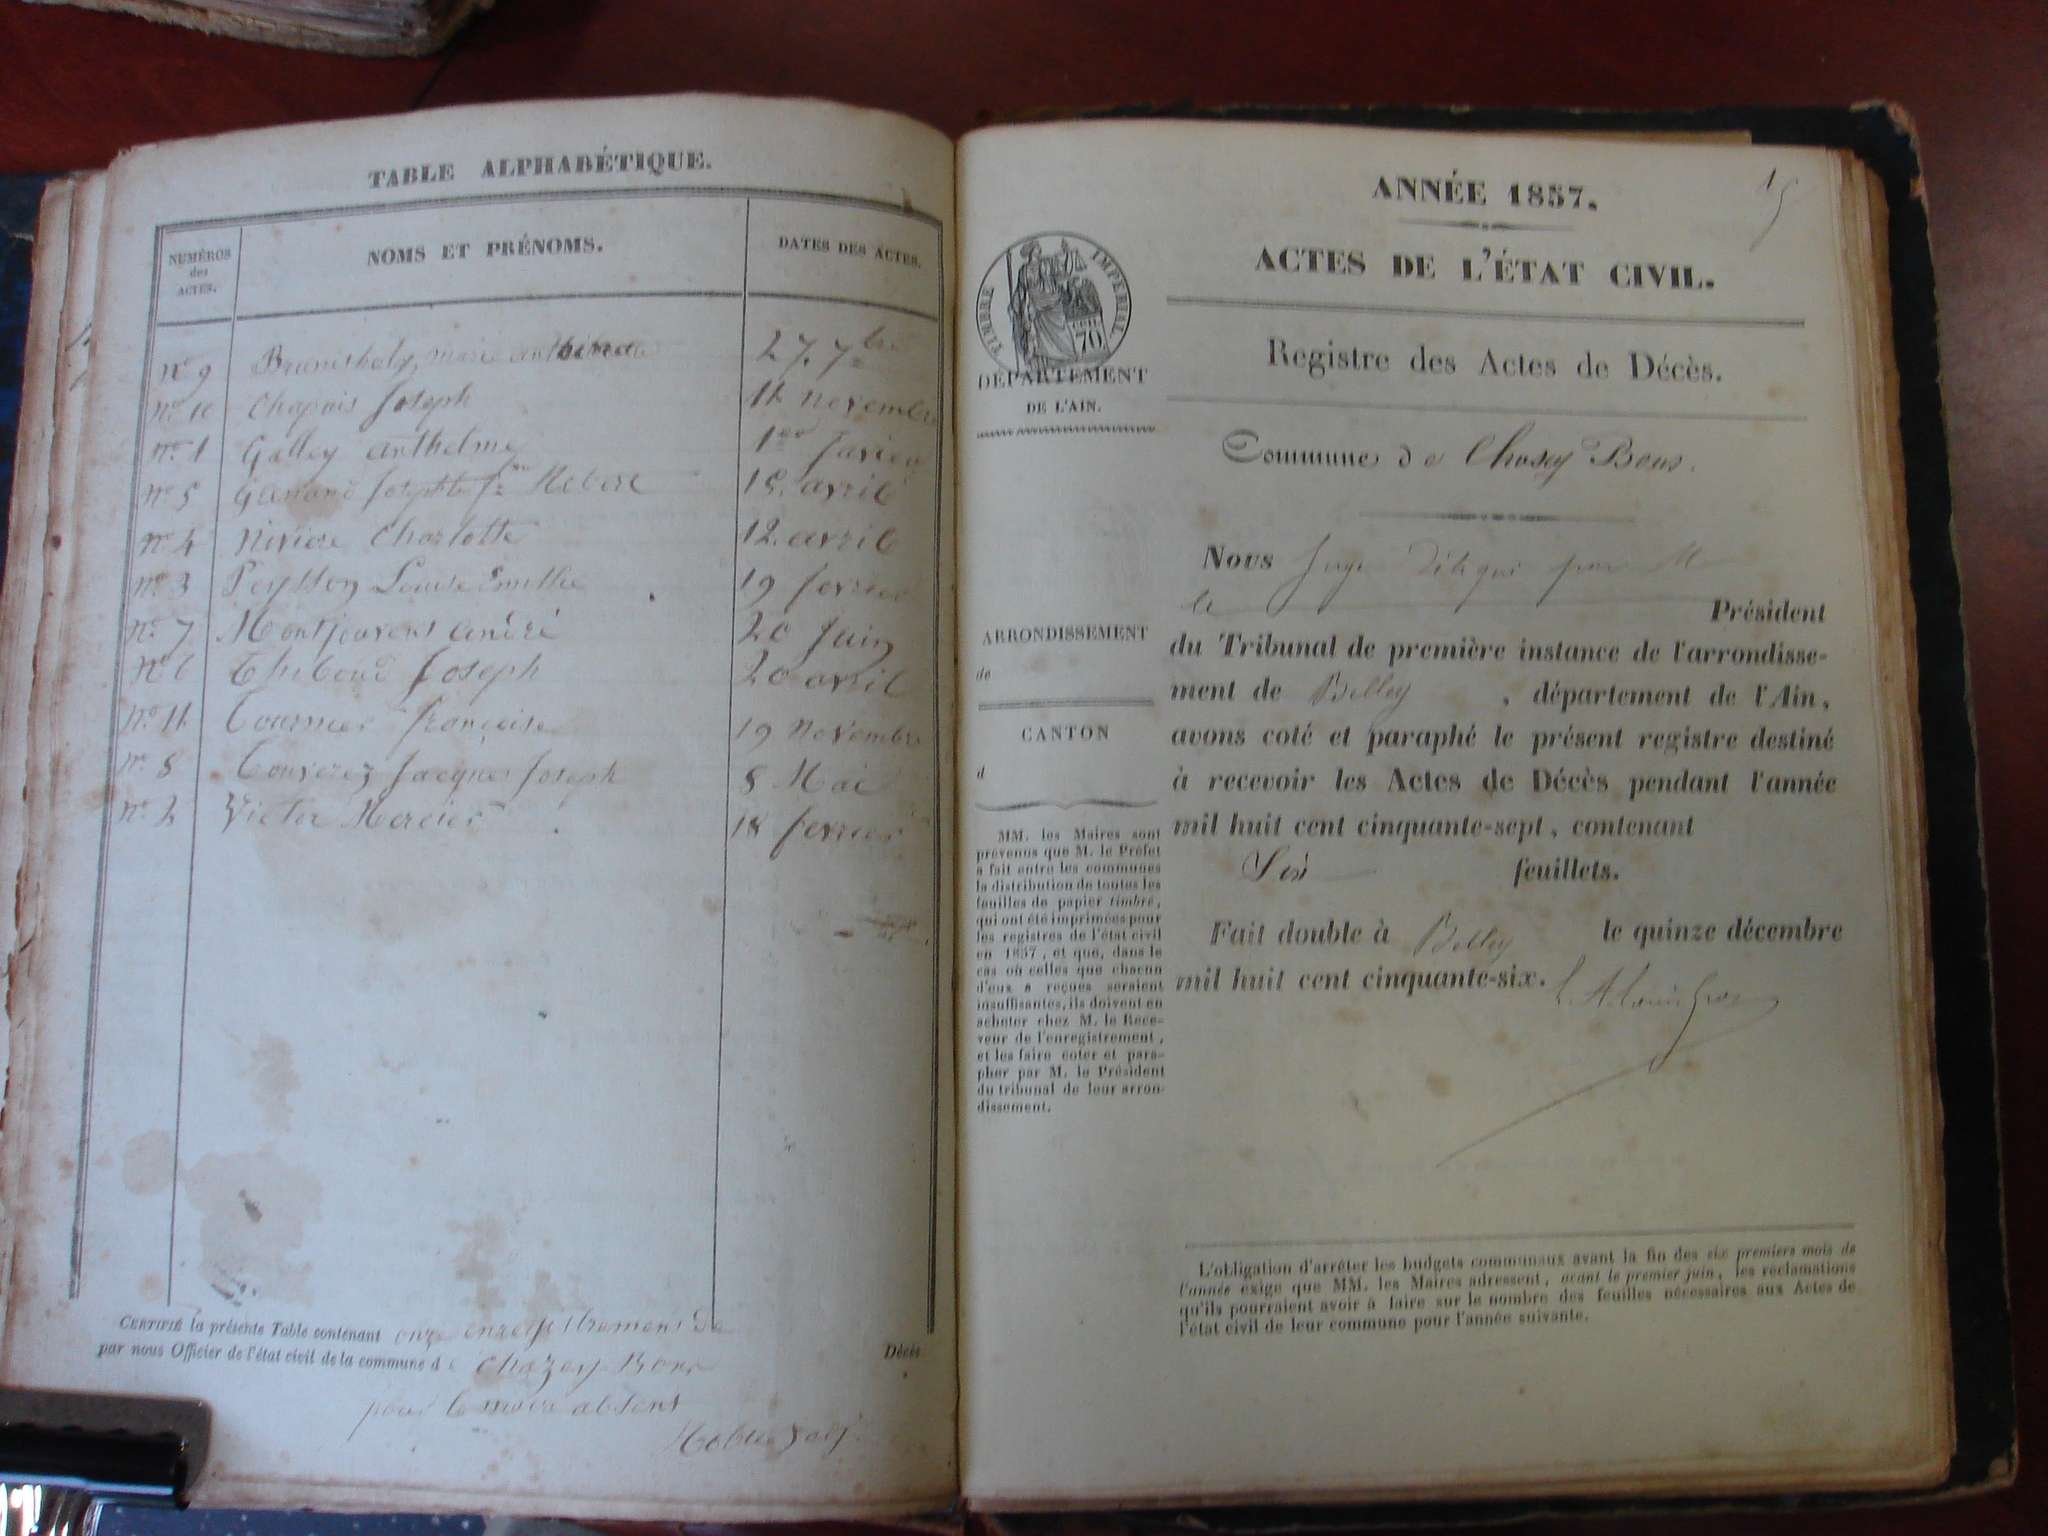 TABLE ALPHABÉTIQUE.
NUMÉROS
des
ACTES.
NOMS ET PRÉNOMS.
DATES DES ACTES.
n° 9 marie 27. 7bre
n° 10 Chapuis Joseph 11 novembre
n° 1 Galley anthelme 1er
n° 5 15. avril
n° 4 Rivière Charlotte 12. avril
n° 3 Peysson Louise 19 fevrier
n° 7 Montjouvent andré 20 Juin
n° 6 Thiboud Joseph 20 avril
n° 11 Tournier françoise 19 Novembre
n° 8 Jacques Joseph 8 Mai
n° 2 Victor Mercier 18 fevrier
CERTIFIÉ la présente Table contenant onze enregistrements de
Décès
par nous Officier de l'état civil de la commune de Chazey Bons
pour le maire absent
15
ANNÉE 1857.
ACTES DE L'ÉTAT CIVIL.
TIMBRE IMPÉRIAL
70
DÉPARTEMENT
DE L'AIN.
Registre des Actes de Décès.
Commune de Chasey Bons.
Nous Juge par M
le Président
du Tribunal de première instance de l'arrondisse-
ment de Belley, département de l'Ain,
avons coté et paraphé le présent registre destiné
à recevoir les Actes de Décès pendant l'année
mil huit cent cinquante-sept, contenant
Six feuillets.
Fait double à Belley le quinze décembre
mil huit cent cinquante-six.
ARRONDISSEMENT
de
CANTON
d
MM. les Maires sont
prévenus que M. le Préfet
a fait entre les communes
la distribution de toutes les
feuilles de papier timbré,
qui ont été imprimées pour
les registres de l'état civil
en 1857, et que, dans le
cas où celles que chacun
d'eux a reçues seraient
insuffisantes, ils doivent en
acheter chez M. le Rece-
veur de l'enregistrement,
et les faire coter et para-
pher par M. le Président
du tribunal de leur arron-
dissement.
L'obligation d'arrêter les budgets communaux avant la fin des six premiers mois de
l'année exige que MM. les Maires adressent, avant le premier juin, les réclamations
qu'ils pourraient avoir à faire sur le nombre des feuilles nécessaires aux Actes de
l'état civil de leur commune pour l'année suivante.